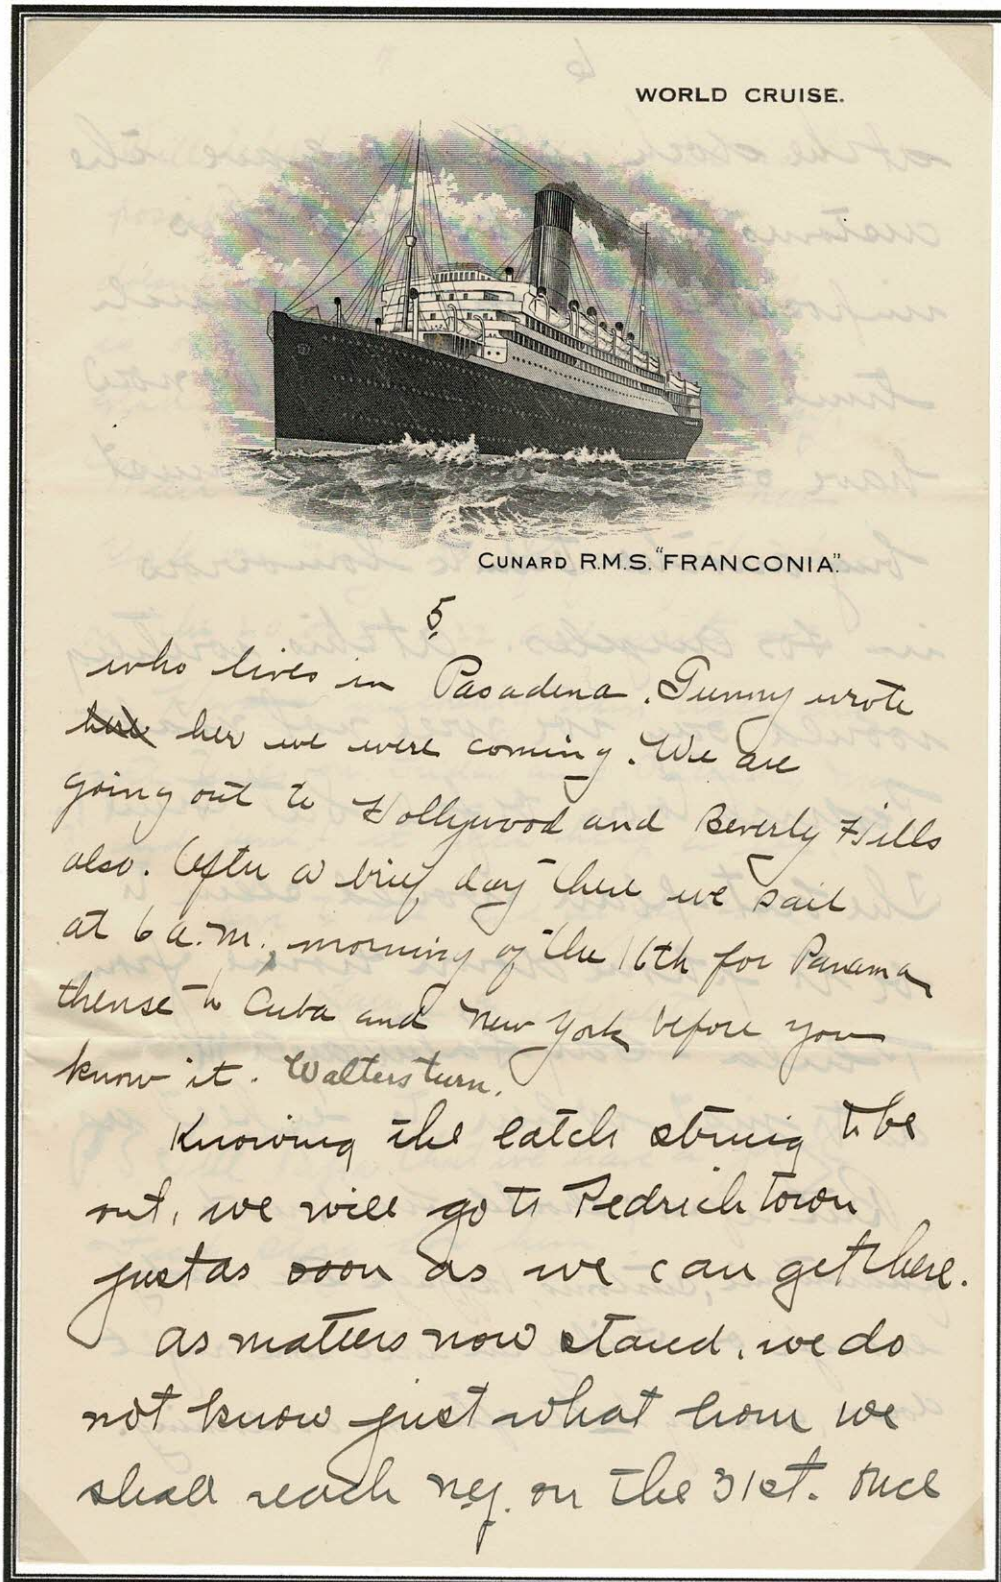 WORLD CRUISE.
CUNARD R.M.S. "FRANCONIA".
5
who lives in Pasadena. Gunny wrote
her we were coming. We are
going out to Hollywood and Beverly Hills
also. After a brief day there we sail
at 6 a.m., morning of the 16th for Panama,
thense to Cuba and New York before you
know it. Walters turn.
Knowing the latch string to be
out, we will go to Pedricktown
just as soon as we can get there.
As matters now stand, we do
not know just what hour we
shall reach N.Y. on the 31st. Once